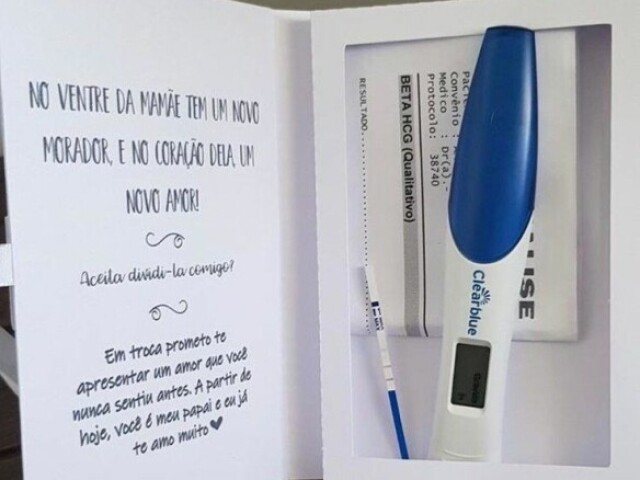 NO VENTRE DA MAMÃE TEM UM NOVO
MORADOR, E NO CORAÇÃO DELA, UM
NOVO AMOR!
Aceita dividi-la comigo?
Em troca prometo te
apresentar um amor que você
nunca sentiu antes. A partir de
hoje, você é meu papai e eu já
te amo muito
Convênio :
Medico : Dr(a).
Protocolo: 38740
BETA HCG (Qualitativo)
RESULTADO
Clearblue